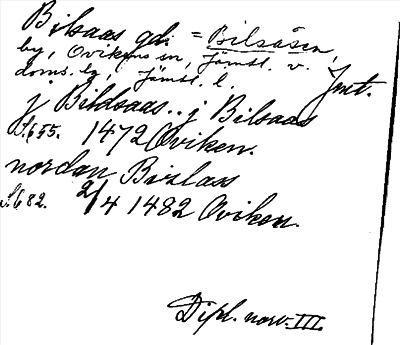 Bilsaas gd. = Bilsåsen,
by, Ovikens sn, Jämtl. v.
doms.lg, Jämtl. l. Jmt.
j Bildsaas.. j Bilsaas
S. 655. 1472 Oviken.
nordan Birlass
S. 682. 2/4 1482 Oviken.
Dipl. norv. III.